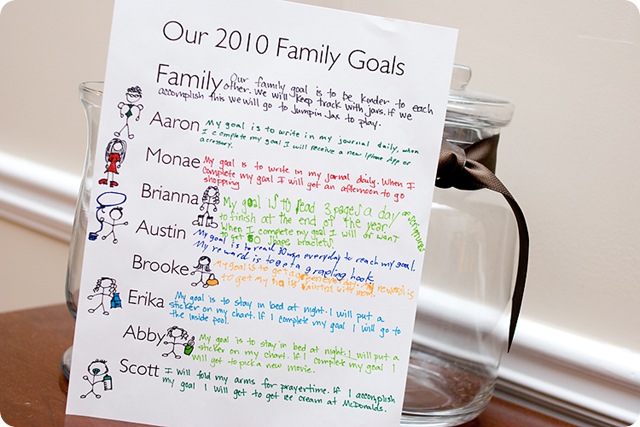 Our 2010 Family Goals
Family Our family goal is to be kinder to each
other. We will keep track with jars. if we
accomplish this we will go to Jumpin Jax to play.
Aaron My goal is to write in my journal daily, when
I complete my goal I will receive a new Iphone App or
accessory.
Monae My goal is to write in my jornal daily. When I
complete my goal I will get an afternoon to go
shopping
Brianna My goal is to read 3 pages a day
to finish at the end of the year.
When I complete my goal I will
get 50 shape bracelets.
Austin My goal is to read everyday to reach my goal.
My reward is to get a grapling hook
Brooke My goal is to get a
to get my with mom.
Erika My goal is to stay in bed at night. I will put a
sticker on my chart. If I complete my goal I will go to
the inside pool.
Abby My goal is to stay in bed at night. I will put a
sticker on my chart. If I complete my goal I
will get to pick a new movie.
Scott I will fold my arms for prayertime. If I accomplish
my goal I will get to get ice cream at McDonalds.